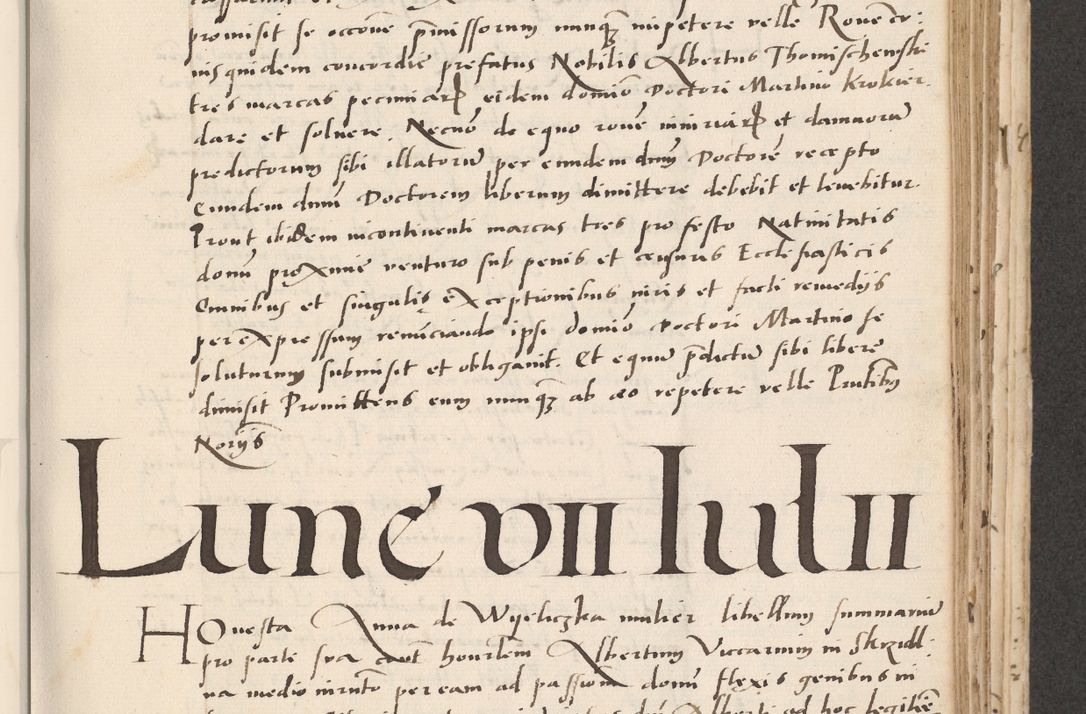 promisit se occone pmissorum nunq̃ impetere velle Rone cō:
nis quidem concordie prefatus Nobilis Albertus Thomischewski
tres marcas pecuniar eidem domiō Doctori Martino Krokier.
dare et soluere. Necnō de equo rone iniuriar et damnorū
predictorum sibi illatorū per eundem dnm̄ Doctorē recepto
Eundem dnm̄ Doctorem liberum dimittere debebit et tenebitur.
Prout ibidem incontinenti marcas tres pro festo Natiuitatis
domī proxime venturo sub penis et censuris Ecclesiasticis
Omnibus et singulis exceptionibus iuris et facti remedijs
per expressum renūciando ipsi domiō Doctori Martino se
soluturum submisit et obligauit. Et equm pdictū sibi libere
dimisit Promittens eum nunq̃ ab eo repetere velle Pntibus
Norijs
Lune vii Iulii
Honesta Anna de Wyeliczka mulier libellum summariū
pro parte sua cont honestem Albertum Viccarium in Skrzidl:
na medio iurnto per eam ad passionē domī flexis genibus in